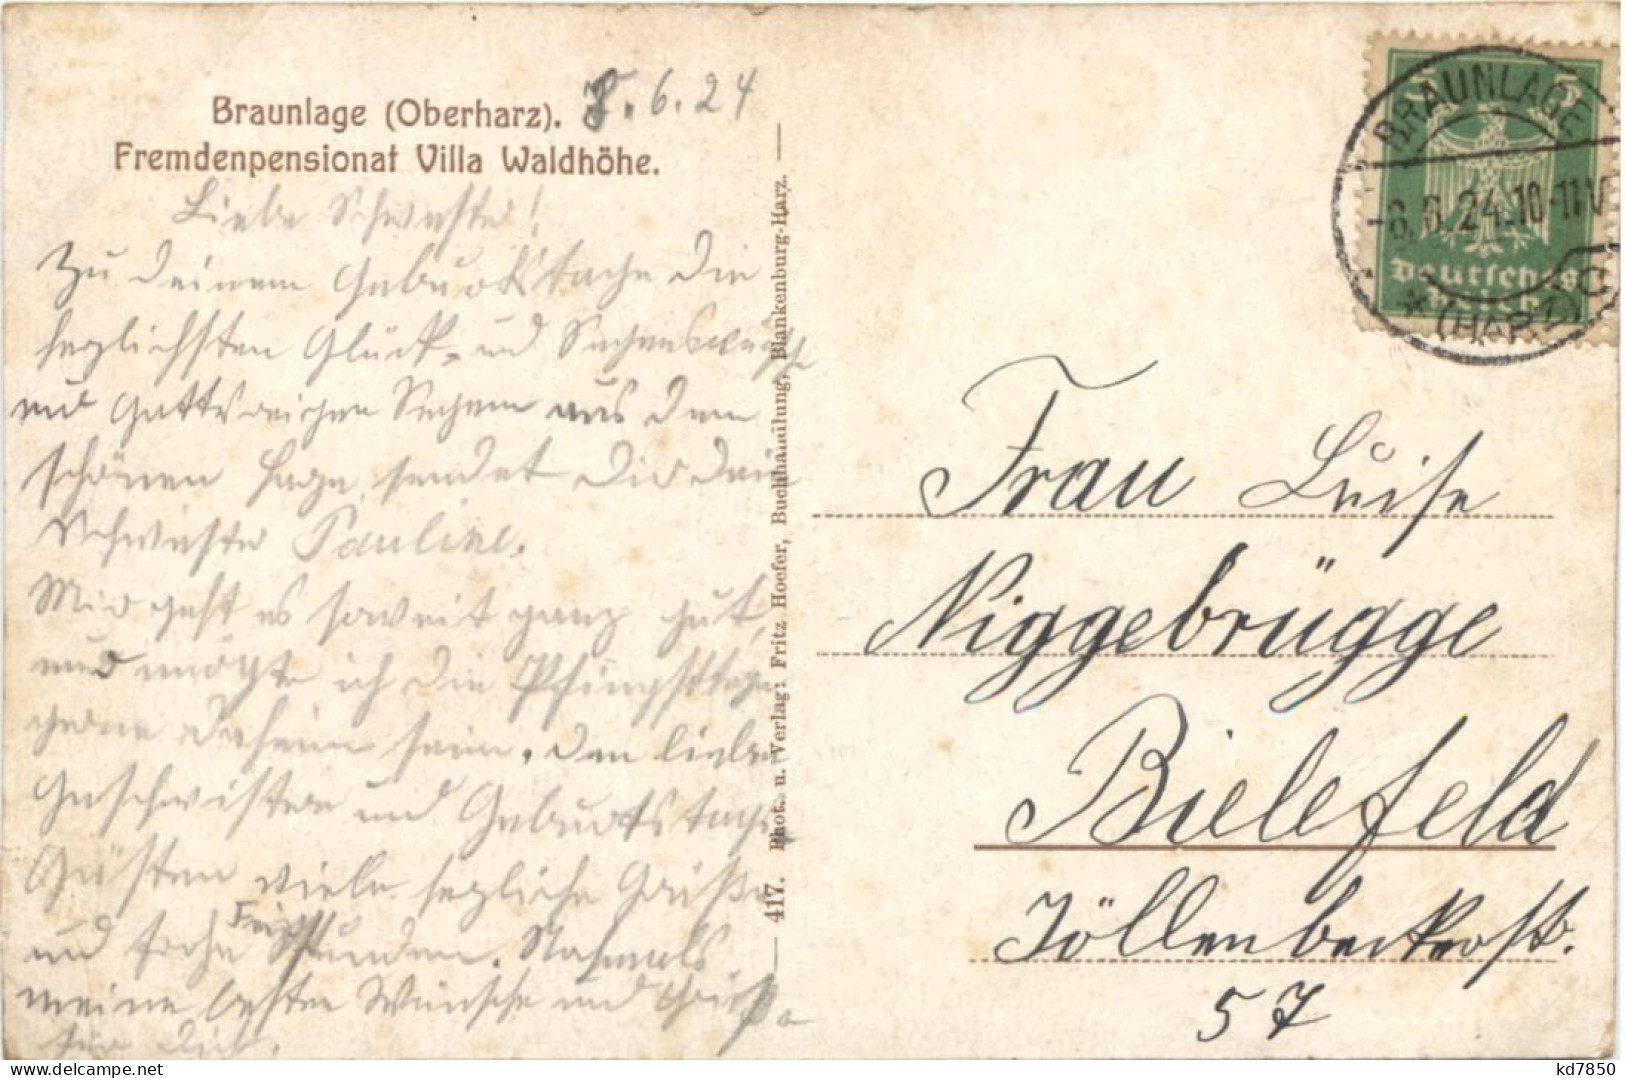 Braunlage (Oberharz). 7.6.24
Fremdenpensionat Villa Waldhöhe.
Liebe Schwester!
Zu deinem Geburtstage die
herzlichsten Glück- und Segenswünsche
und Gottes reichen Segen aus dem
schönen Harze sendet Dir deine
Schwester Pauline.
Mir geht es soweit ganz gut,
und möchte ich die Pfingsttage
gerne daheim sein. Den lieben
Geschwistern und Geburtstags
Gästen viele herzliche Grüße
und frohe Fest Stunden. Nochmals
meine besten Wünsche und Grüße
für Dich.
417. Phot. u. Verlag: Fritz Hoefer, Buchhandlung, Blankenburg-Harz.
5 5
Deutsches
Reich
BRAUNLAGE
-8.6.24.10-11V
* (HARZ)
Frau Luise
Niggebrügge
Bielefeld
Jöllenbeckerstr.
57
kd7850